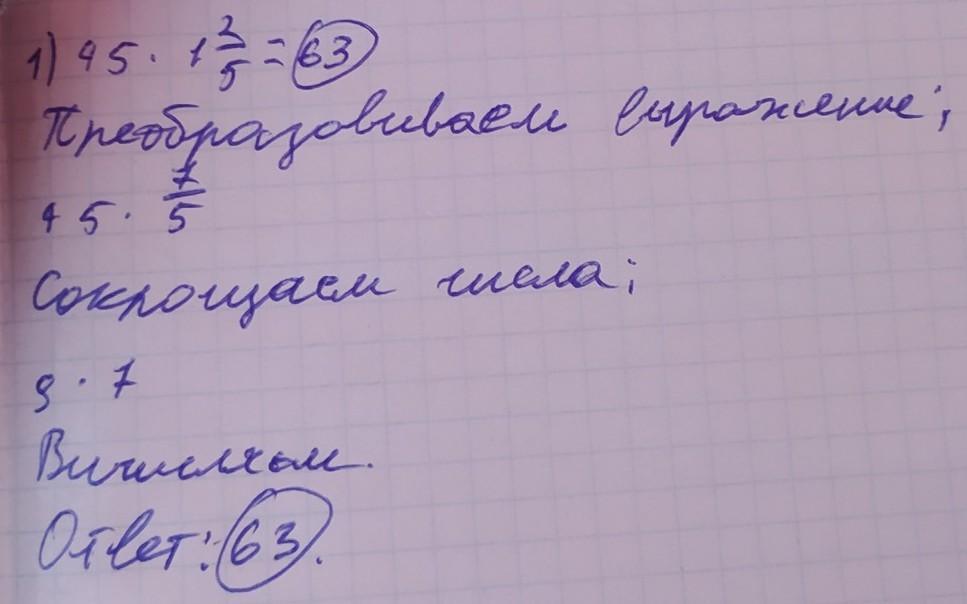 1) 45 · 1 2/5 = 63
Преобразовиваем выражение;
45 · 7/5
Сокрощаем числа;
9 · 7
Вичисляем.
Ответ: 63.